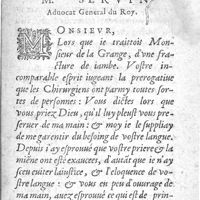 M. SERVIN
Advocat General du Roy.
MONSIEVR,
Lors que ie traittois Mon-
sieur de la Grange, d'vne fra-
cture de iambe. Vostre in-
comparable esprit iugeant la prerogatiue
que les Chirurgiens ont parmy toutes sor-
tes de personnes: Vous dictes lors que
vous priez Dieu, qu'il luy pleust vous pre-
seruer de ma main: & moy ie le suppliay
de me garentir du besoing de vostre langue.
Depuis i'ay esprouué que vostre priere & la
miéne ont esté exaucées, d'autāt que ie n'ay
sceu euiter la iustice, & l'eloquence de vo-
stre langue: & vous en peu d'ouurage de
ma main, auez esprouué ce qui est de prin-